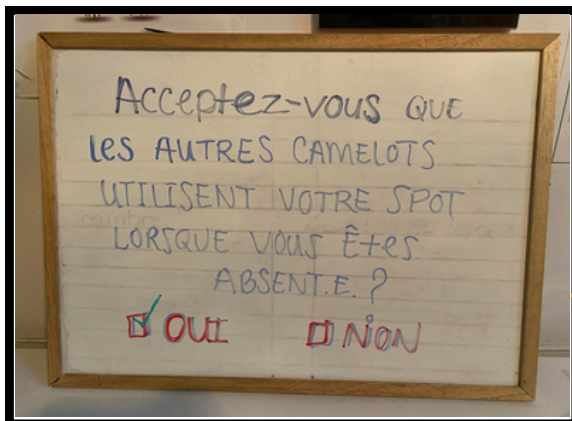 Acceptez-vous QUE
LES AUTRES CAMELOTS
UTILISENT VOTRE SPOT
LORSQUE VOUS Êtes
ABSENT.E.?
☑ OUI ☐ NON